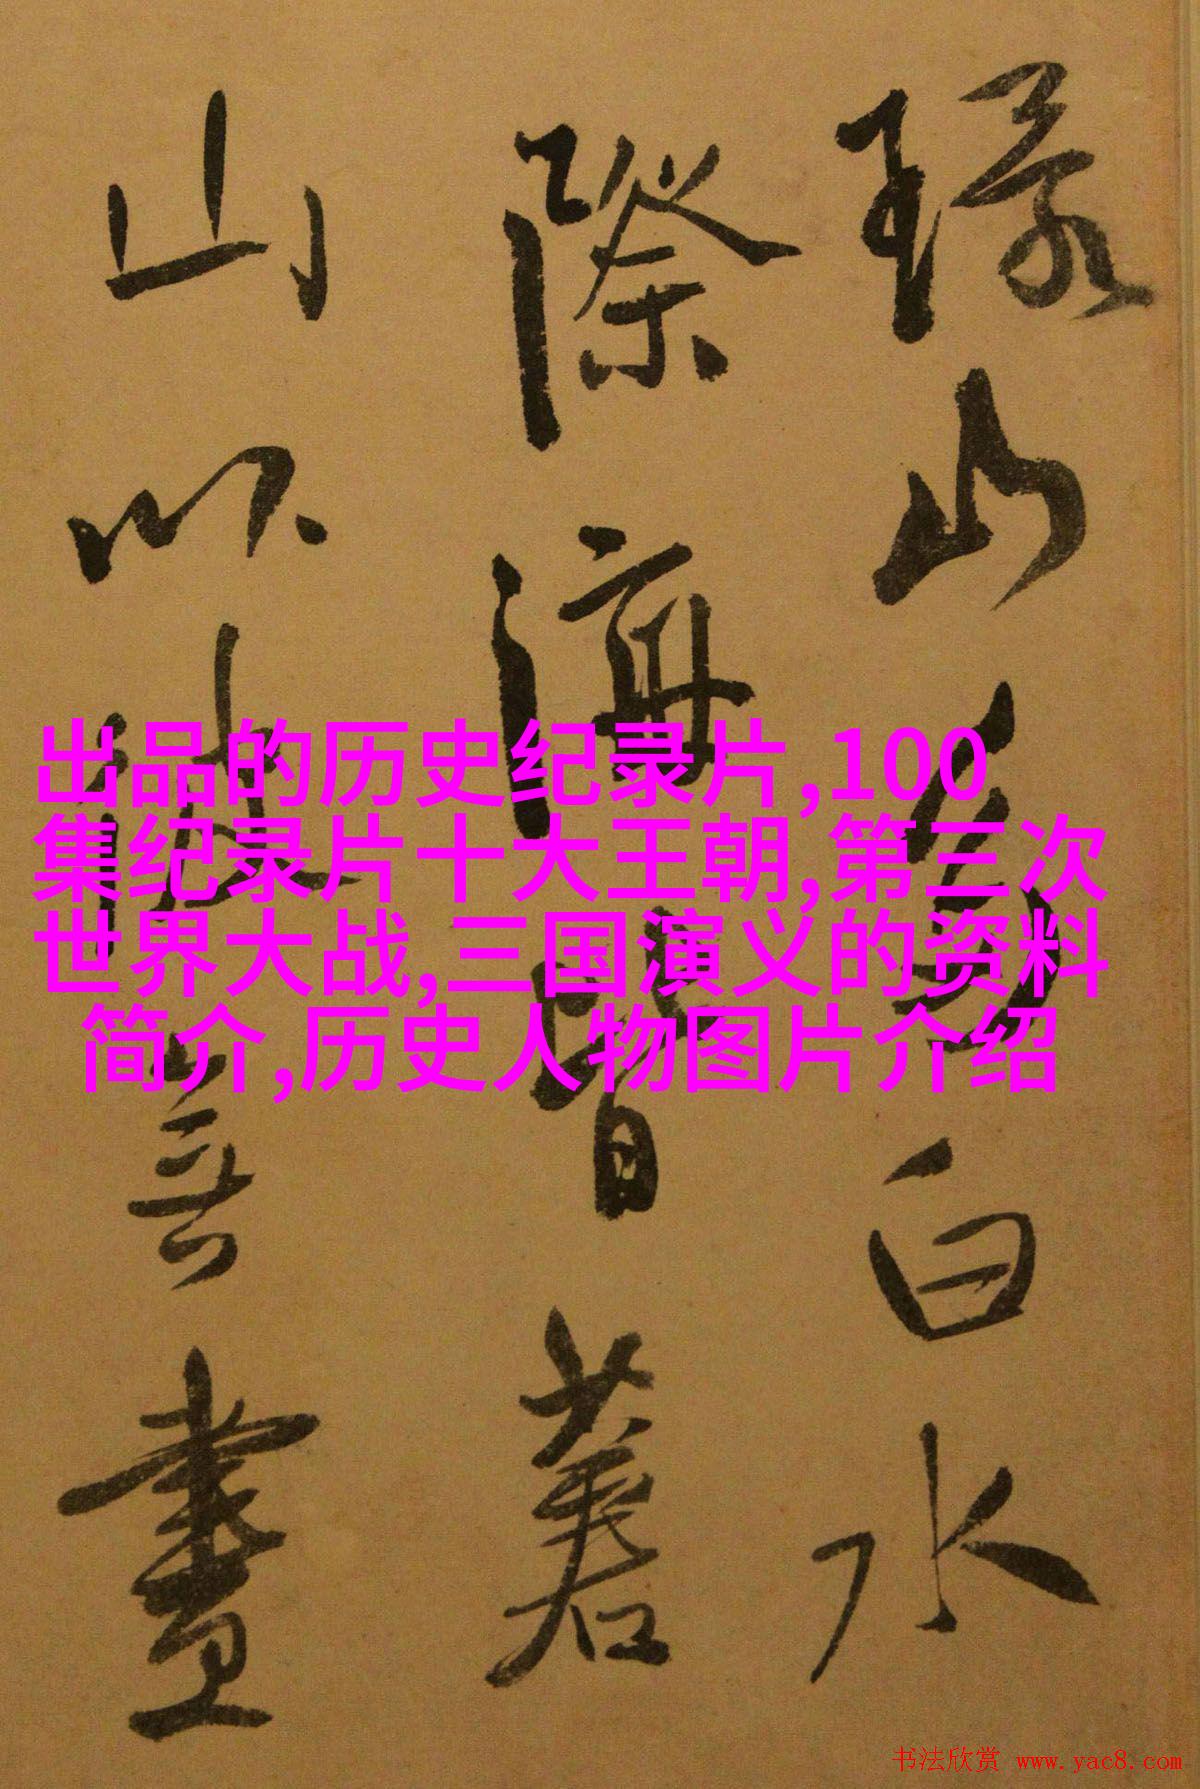 山白水
際海皆著
山以
出品的历史纪录片,100
集纪录片十大王朝,第三次
世界大战,三国演义的资料
简介,历史人物图片介绍
书法欣赏 www.yac8.com